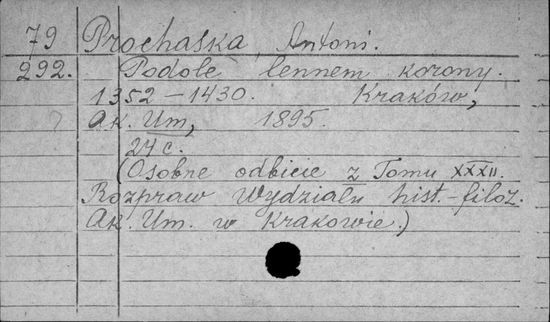 79 Prochaska, Antoni.
292. Podole lennem korony.
1352 – 1430. Kraków,
Ak. Um, 1895.
24 c.
(Osobne odbicie z Tomu XXXII.
Rozpraw Wydziału hist.-filoz.
Ak. Um. w Krakowie.)